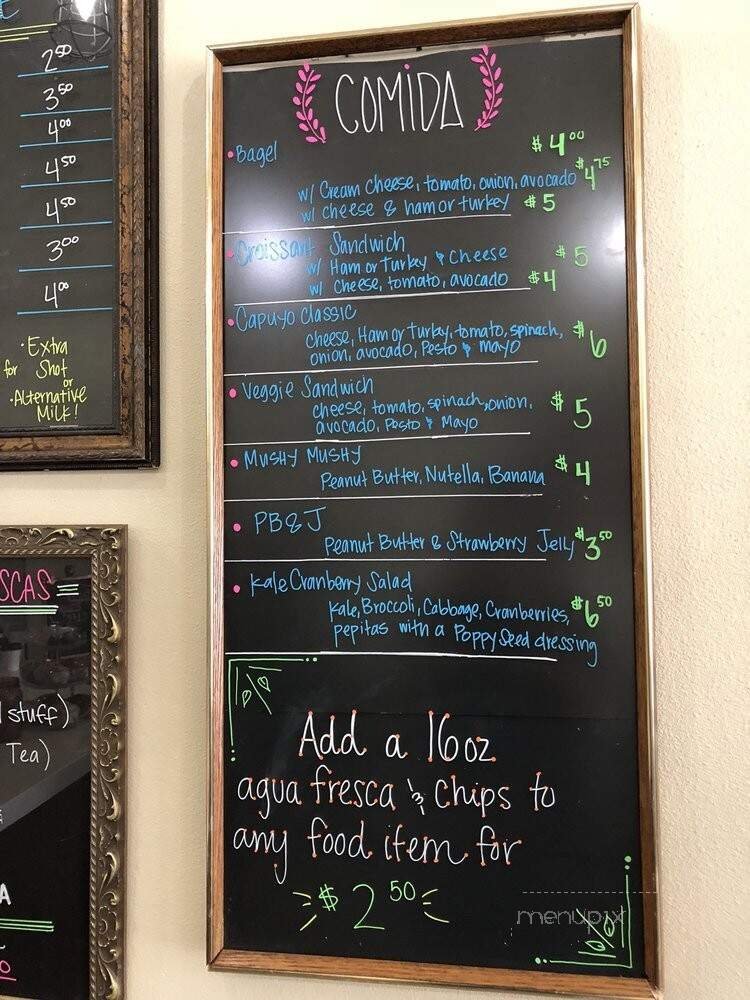 2.50
3.50
4.00
4.50
4.50
3.00
4.00
• Extra
for Shot
or
• Alternative
Milk!
SCAS
stuff)
Tea)
A
COMIDA
• Bagel $4.00
w/ Cream cheese, tomato, onion, avocado $4.75
w/ cheese & ham or turkey $5
• Croissant Sandwich
w/ Ham or Turkey & Cheese $5
w/ Cheese, tomato, avocado $4
• Capuyo Classic
cheese, Ham or Turkey, tomato, spinach, $6
onion, avocado, Pesto & mayo
• Veggie Sandwich
cheese, tomato, spinach, onion, $5
avocado, Pesto & Mayo
• MUSHY MUSHY
Peanut Butter, Nutella, Banana $4
• PB & J
Peanut Butter & Strawberry Jelly $3.50
• Kale Cranberry Salad
Kale, Broccoli, Cabbage, Cranberries, $6.50
pepitas with a Poppy Seed dressing
Add a 16oz
agua fresca & chips to
any food item for
$2.50
menupix